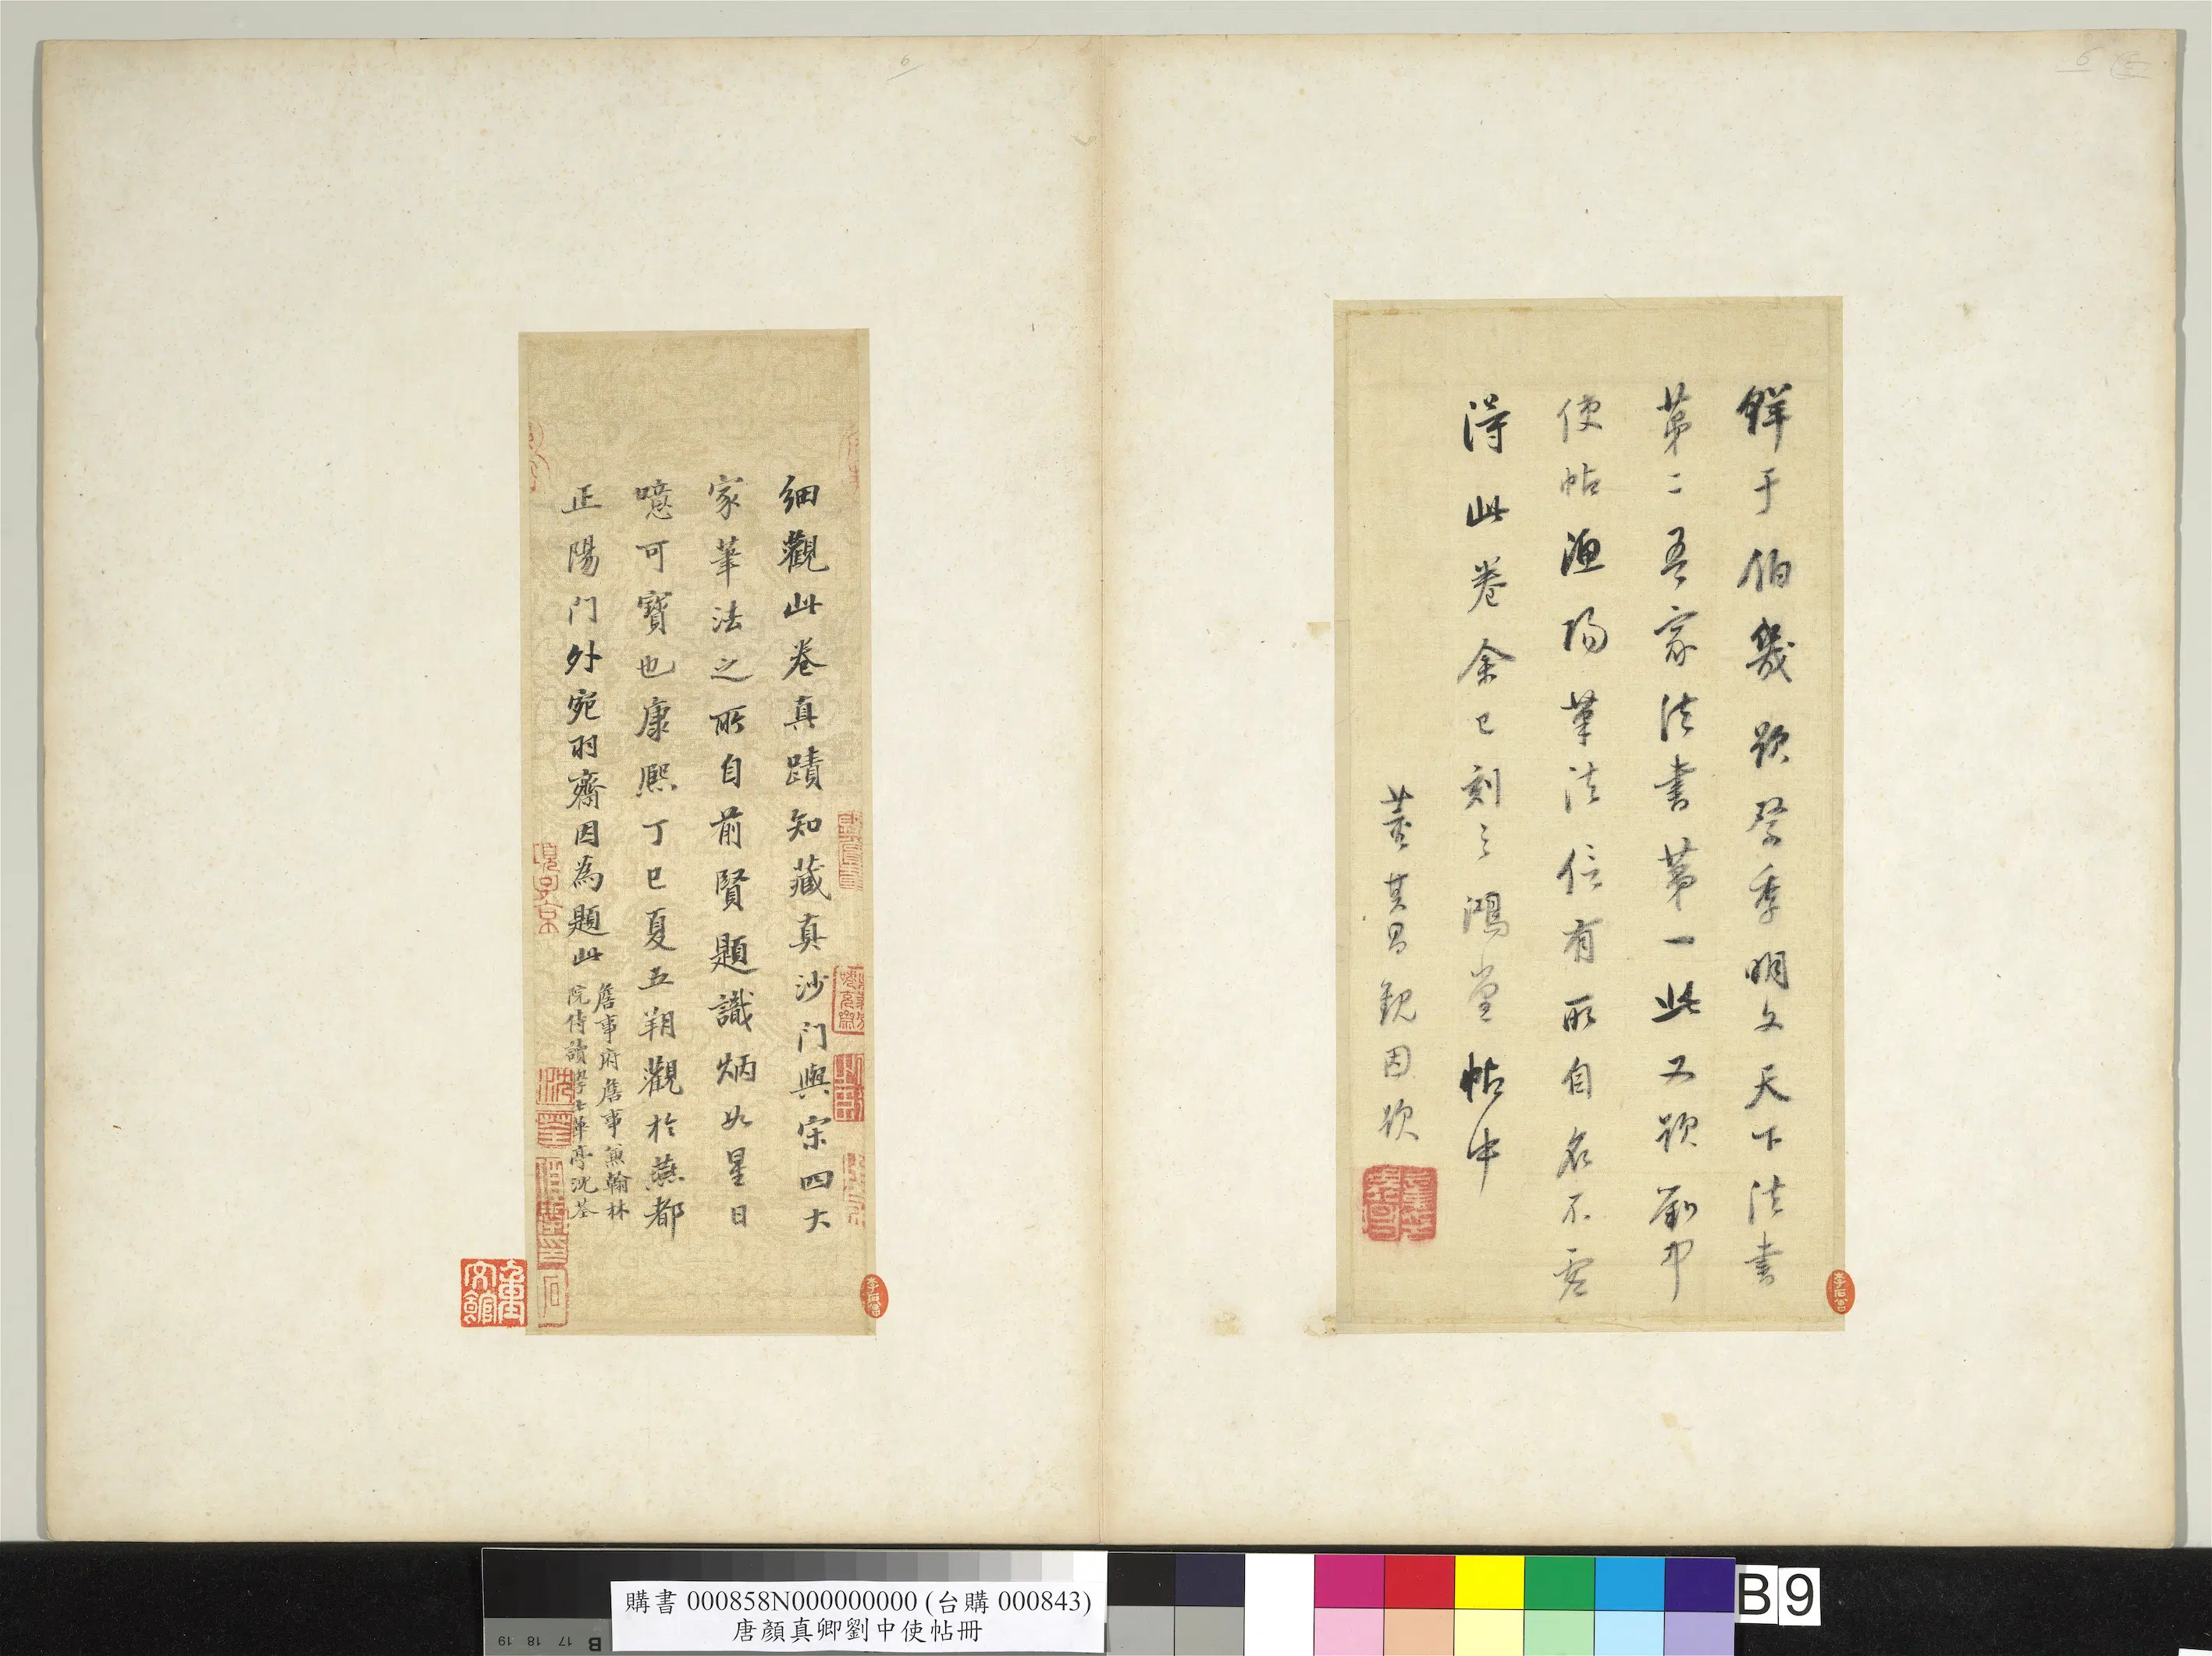 鮮于伯幾題祭季明文天下法書
第二吾家法書第一此又題劉中
使帖漁陽筆法信有所自名不虛
得此卷余已刻之鴻堂帖中
董其昌觀因題
細觀此卷真蹟知藏真沙門與宋四大
家筆法之所自前賢題識炳如星日
噫可寶也康熙丁巳夏五朔觀於燕都
正陽門外宛羽齋因為題此
詹事府詹事兼翰林
院侍讀學士華亭沈荃
購書 000858N000000000 (台購 000843)
唐顏真卿劉中使帖冊
B 9
19 18 17 B
6
6